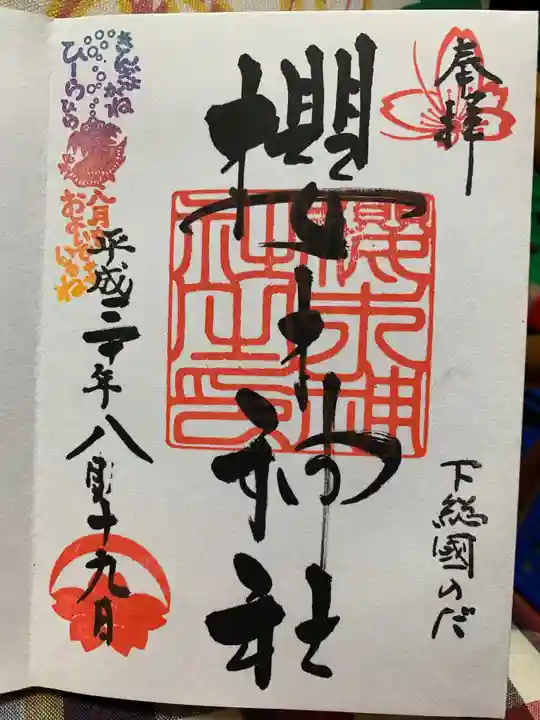 奉拝
下総國のだ
櫻木神社
櫻木神社之印
平成三十年八月十九日
きんぎょがね
ひーらひら
八月
およいで
いるね